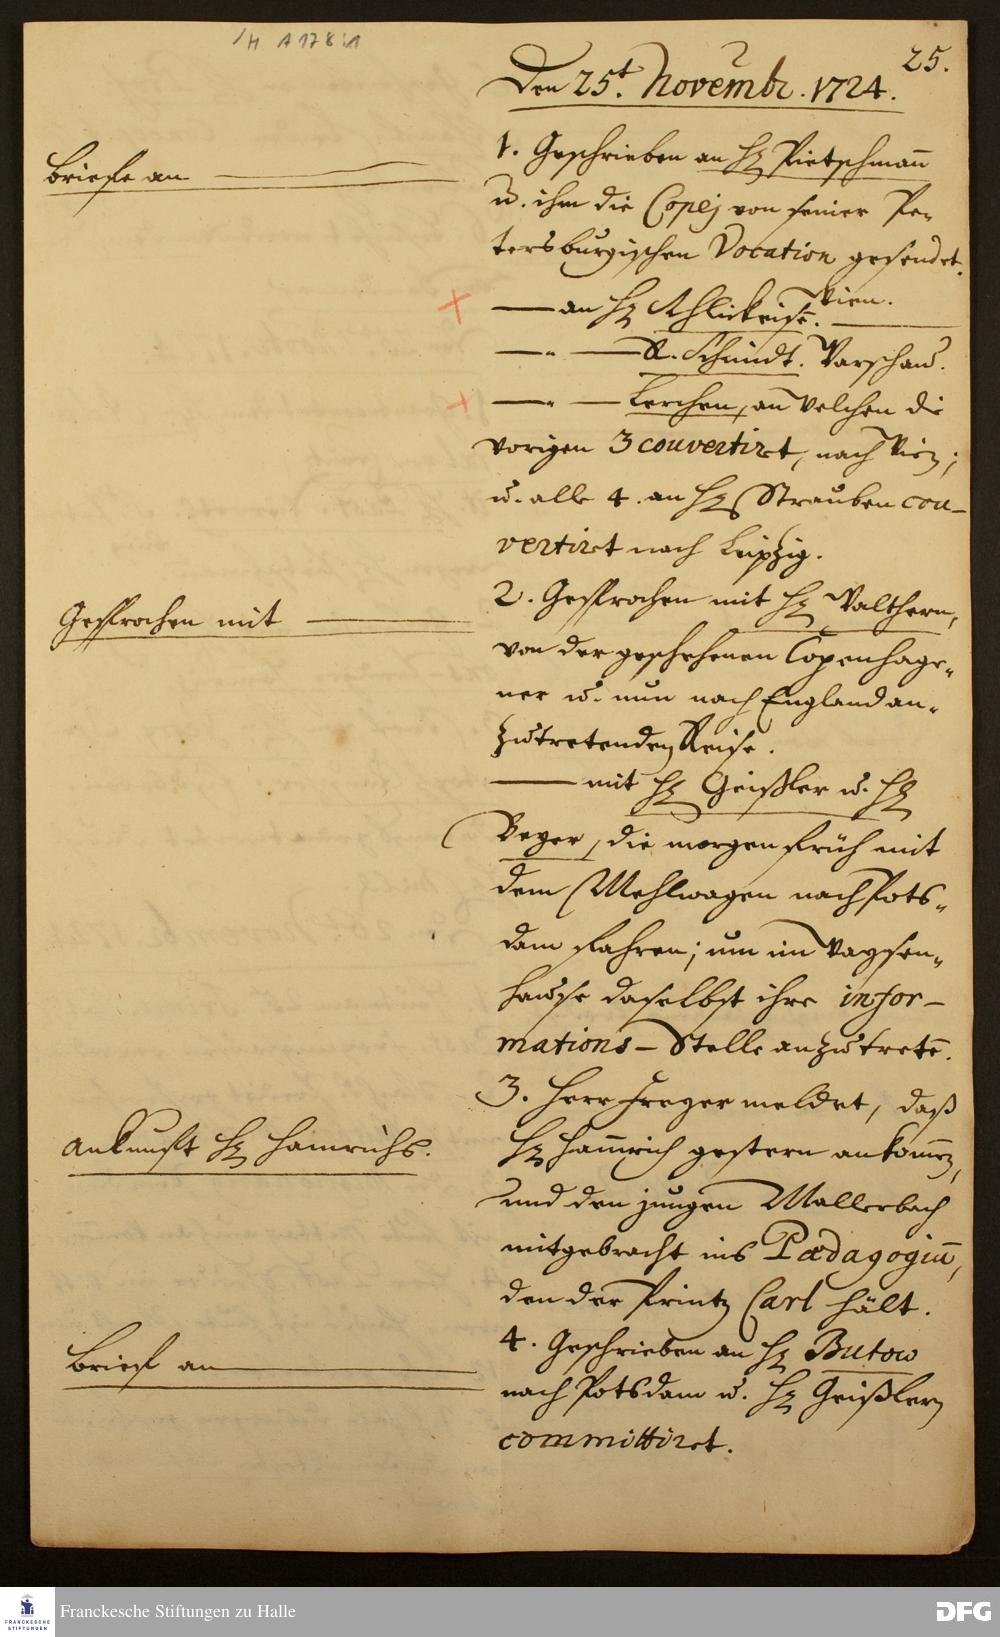 H A 178:1
25.
Den 25t. Novembr. 1724.
Briefe an
1. Geschrieben an H. Pietschmañ
u. ihm die Copej von seiner Pe-
tersburgischen Vocation gesendet.
— an H. Wien.
— " — R. Schmidt. Warschau.
— " — Lerchen, an welchen die
vorigen 3 couvertiret, nach Wien;
u. alle 4. an H. Strauben cou-
vertiret nach Leipzig.
Gesprochen mit
2. Gesprochen mit H. Walthern,
von der geschehenen Copenhage-
ner u. nun nach England an-
zutretenden Reise.
— mit H. Geißler u. H.
Beyer, die morgen früh mit
dem Mehlwagen nach Pots-
dam fahren; um im Waysen-
hause daselbst ihre infor-
mations-Stelle anzutretē.
Ankunfft H. Hainrichs.
3. Herr Freyer meldet, daß
H. gestern ankom̄en,
und den jungen Mallerbach
mitgebracht ins Pædagogiū,
den der Printz Carl hält.
Brief an
4. Geschrieben an H. Butow
nach Potsdam u. H. Geißlern
committiret.
FRANCKESCHE
STIFTUNGEN
Franckesche Stiftungen zu Halle
DFG